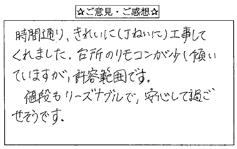 ☆ご意見・ご感想☆
時間通り、きれいに(丁ねいに)工事して
くれました。台所のリモコンが少し傾い
ていますが、許容範囲です。
値段もリーズナブルで、安心して過ご
せそうです。